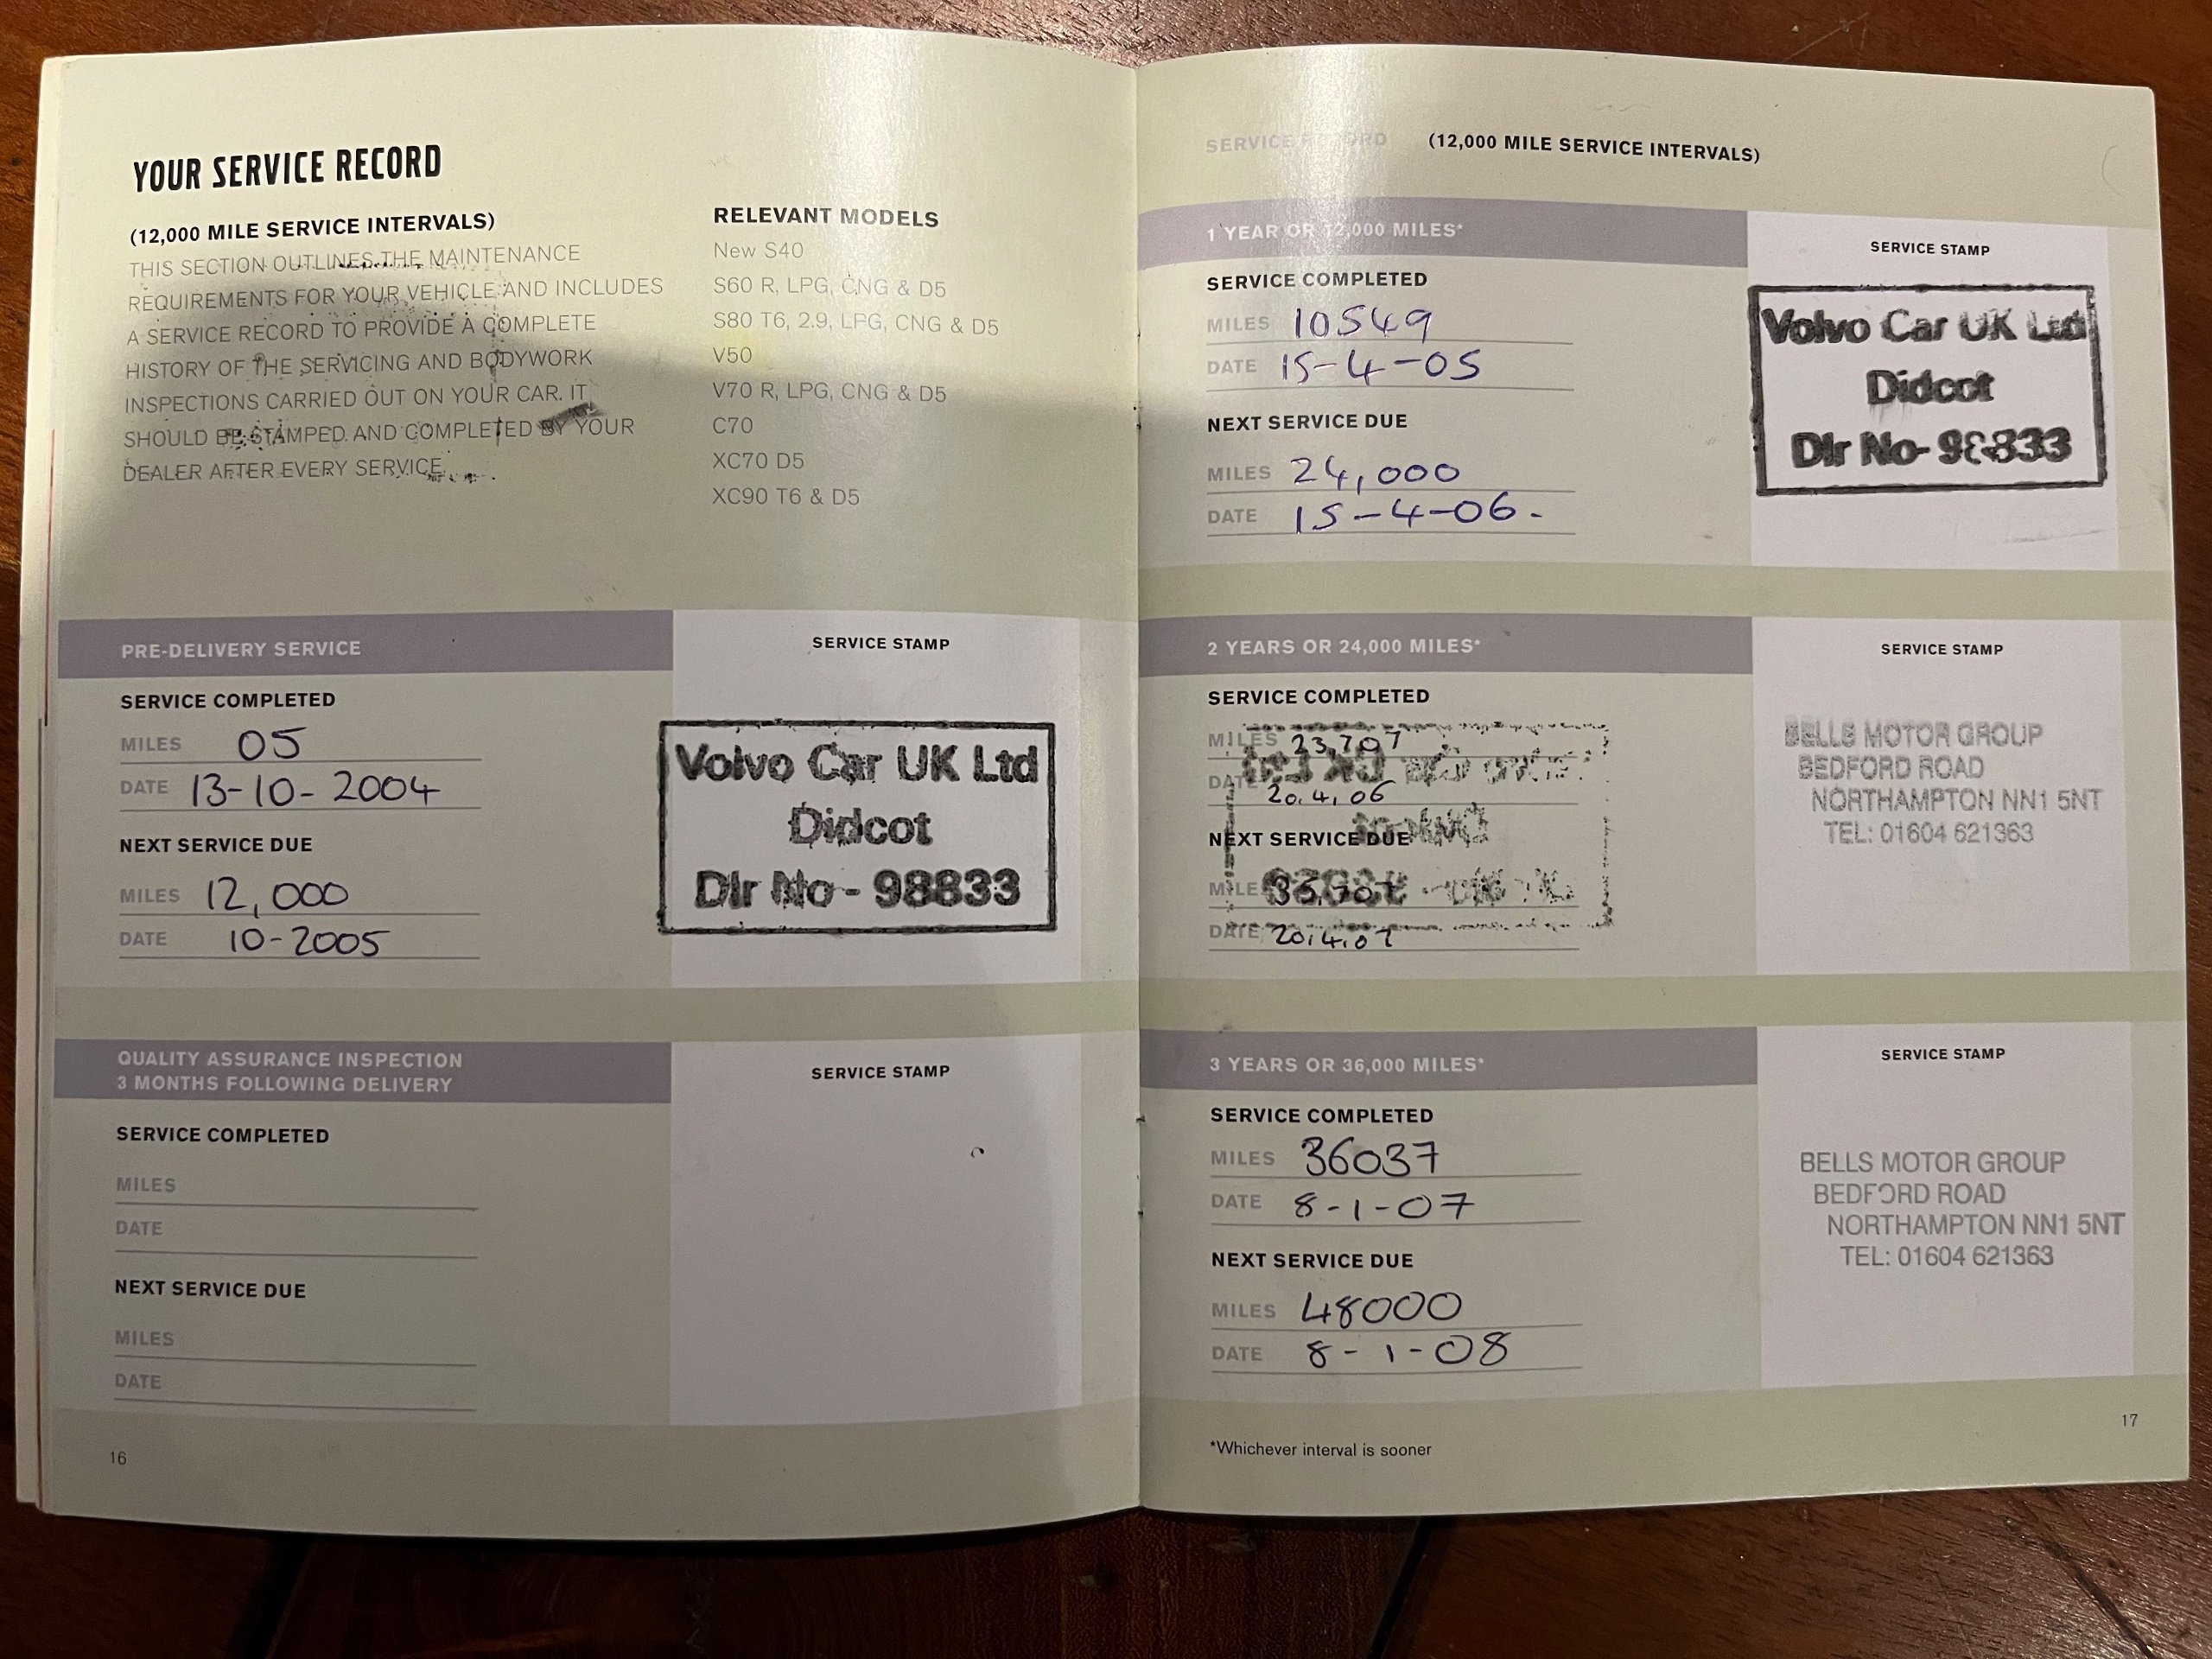 YOUR SERVICE RECORD
(12,000 MILE SERVICE INTERVALS)
THIS SECTION OUTLINES THE MAINTENANCE
REQUIREMENTS FOR YOUR VEHICLE AND INCLUDES
A SERVICE RECORD TO PROVIDE A COMPLETE
HISTORY OF THE SERVICING AND BODYWORK
INSPECTIONS CARRIED OUT ON YOUR CAR. IT
SHOULD BE STAMPED AND COMPLETED BY YOUR
DEALER AFTER EVERY SERVICE.
RELEVANT MODELS
New S40
S60 R, LPG, CNG & D5
S80 T6, 2.9, LPG, CNG & D5
V50
V70 R, LPG, CNG & D5
C70
XC70 D5
XC90 T6 & D5
PRE-DELIVERY SERVICE
SERVICE COMPLETED
MILES 05
DATE 13-10-2004
NEXT SERVICE DUE
MILES 12,000
DATE 10-2005
SERVICE STAMP
Volvo Car UK Ltd
Didcot
Dlr No - 98833
QUALITY ASSURANCE INSPECTION
3 MONTHS FOLLOWING DELIVERY
SERVICE COMPLETED
MILES
DATE
NEXT SERVICE DUE
MILES
DATE
SERVICE STAMP
16
SERVICE RECORD (12,000 MILE SERVICE INTERVALS)
1 YEAR OR 12,000 MILES*
SERVICE COMPLETED
MILES 10549
DATE 15-4-05
NEXT SERVICE DUE
MILES 24,000
DATE 15-4-06.
SERVICE STAMP
Volvo Car UK Ltd
Didcot
Dlr No- 98833
2 YEARS OR 24,000 MILES*
SERVICE COMPLETED
MILES 23,707
DATE 20.4.06
NEXT SERVICE DUE
MILES 35,707
DATE 20.4.07
SERVICE STAMP
BELLS MOTOR GROUP
BEDFORD ROAD
NORTHAMPTON NN1 5NT
TEL: 01604 621363
3 YEARS OR 36,000 MILES*
SERVICE COMPLETED
MILES 36037
DATE 8-1-07
NEXT SERVICE DUE
MILES 48000
DATE 8-1-08
SERVICE STAMP
BELLS MOTOR GROUP
BEDFORD ROAD
NORTHAMPTON NN1 5NT
TEL: 01604 621363
*Whichever interval is sooner
17